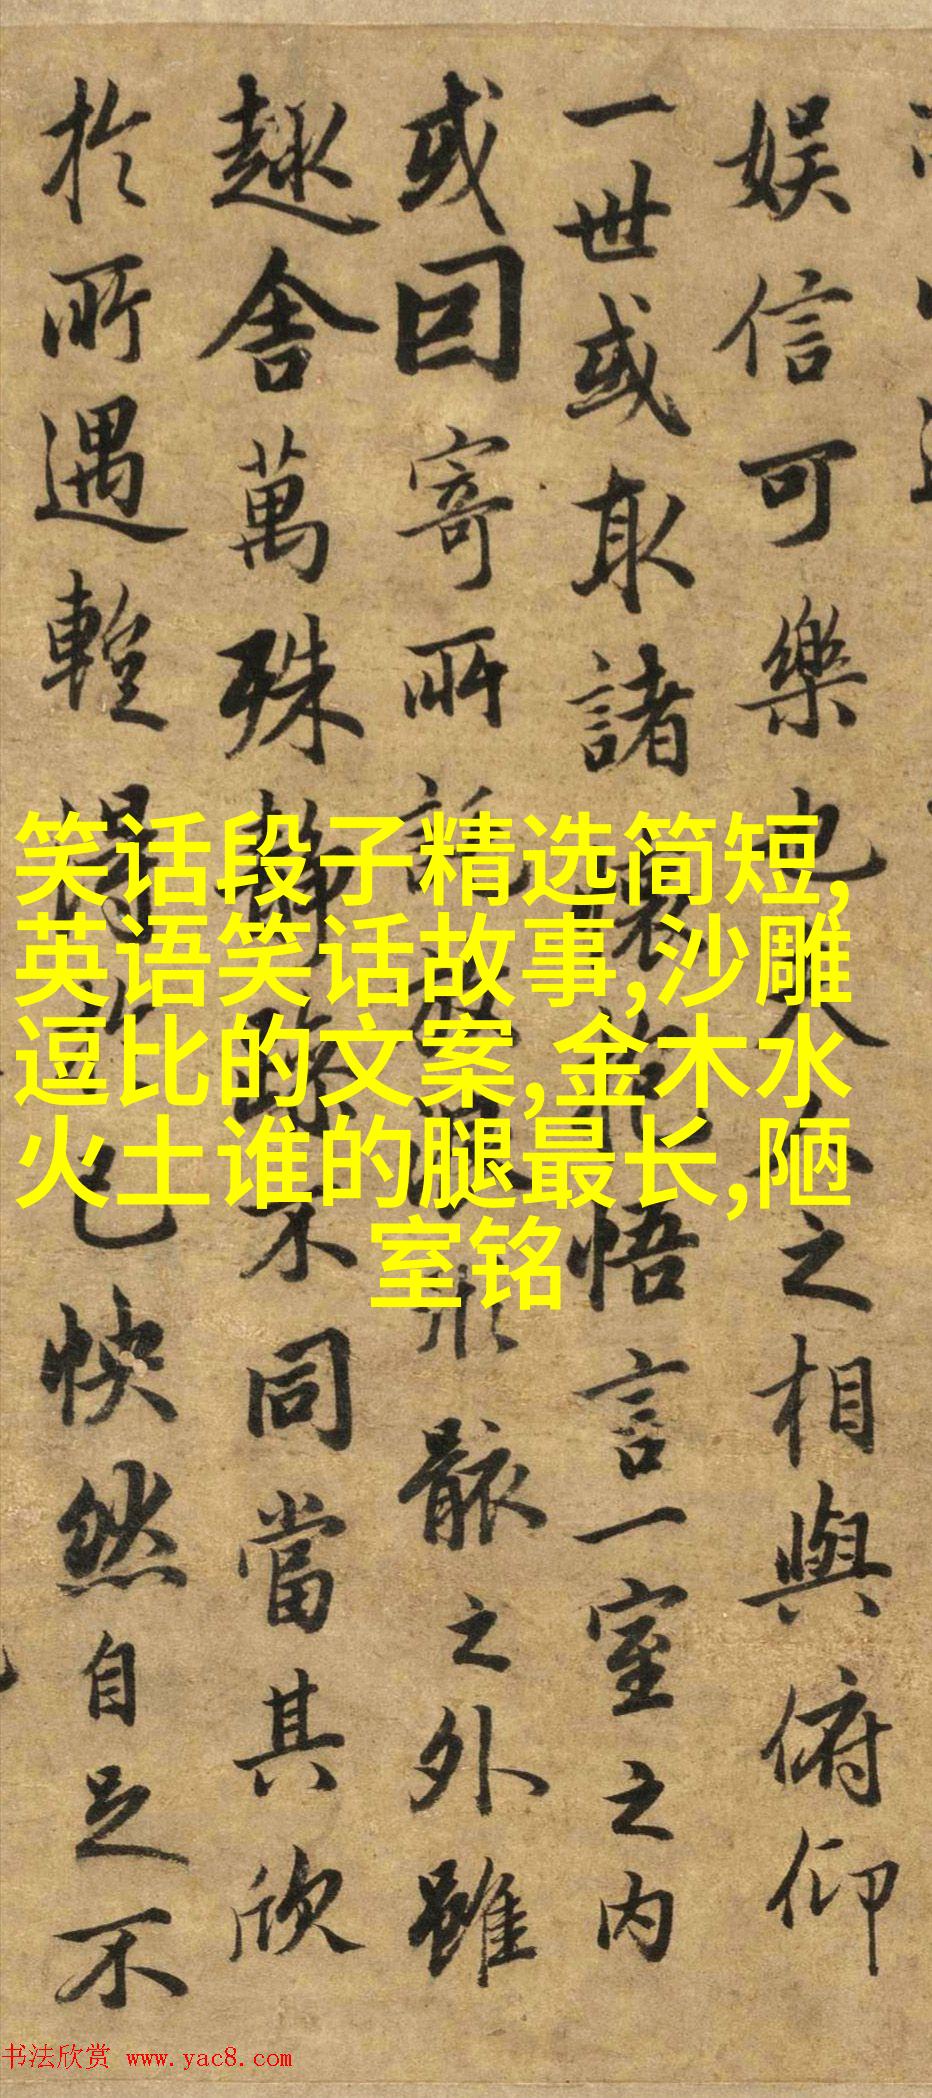 娱信可樂也夫人之相與俯仰
一世或取諸懷抱悟言一室之内
或因寄所託放浪形骸之外雖
趣舍萬殊静躁不同當其欣
於所遇輙得於己快然自足不
笑话段子精选简短,
英语笑话故事,沙雕
逗比的文案,金木水
火土谁的腿最长,陋
室铭
书法欣赏 www.yac8.com